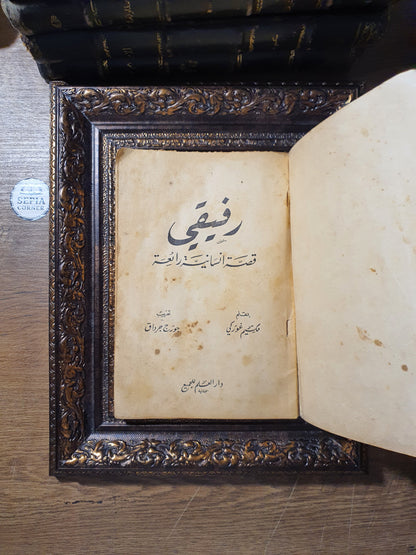 SEPIA
CORNER
رفيقي
قصة انسانية رائعة
بقلم
مكسيم غوركي
تعريب
جورج جرداق
دار العلم للجميع